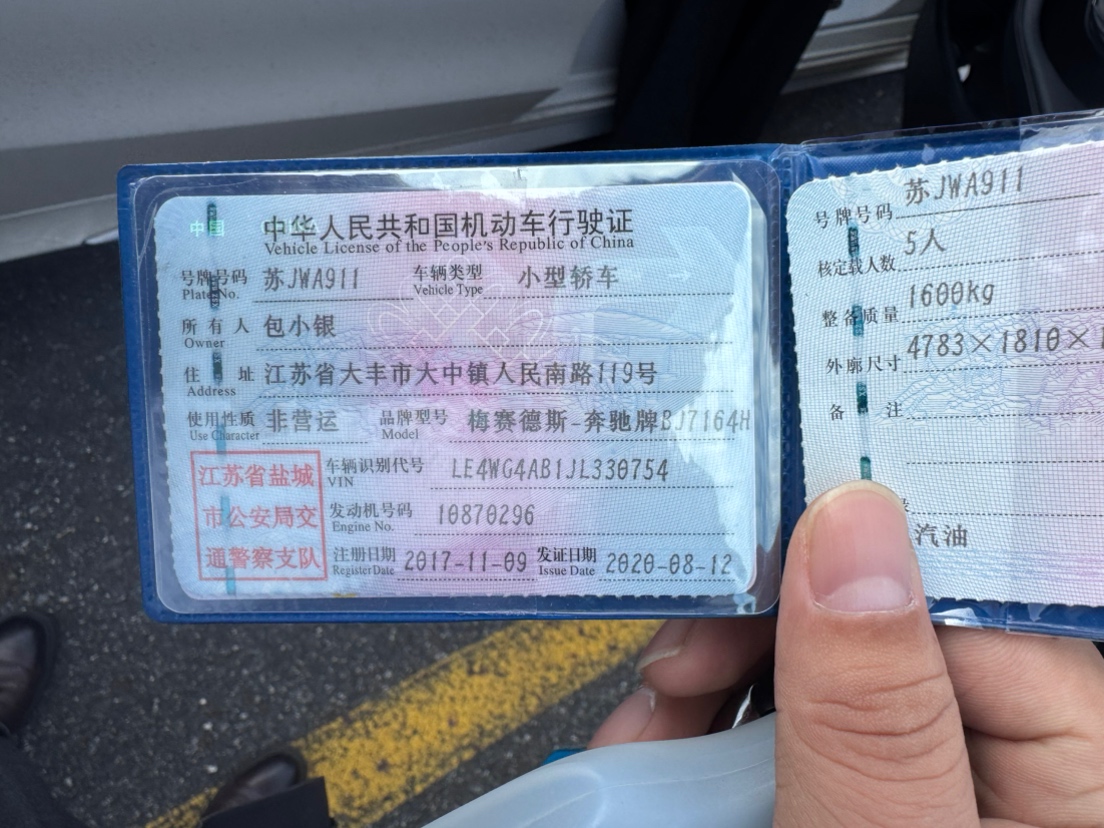 中国
中华人民共和国机动车行驶证
Vehicle License of the People's Republic of China
号牌号码 苏JWA911 车辆类型 小型轿车
Plate No. Vehicle Type
所有人 包小银
Owner
住址 江苏省大丰市大中镇人民南路119号
Address
使用性质 非营运 品牌型号 梅赛德斯-奔驰牌BJ7164H
Use Character Model
江苏省盐城
市公安局交
通警察支队
车辆识别代号 LE4WG4AB1JL330754
VIN
发动机号码 10870296
Engine No.
注册日期 2017-11-09 发证日期 2020-08-12
Register Date Issue Date
号牌号码 苏JWA911
核定载人数 5人
整备质量 1600kg
外廓尺寸 4783×1810×1
备注
汽油